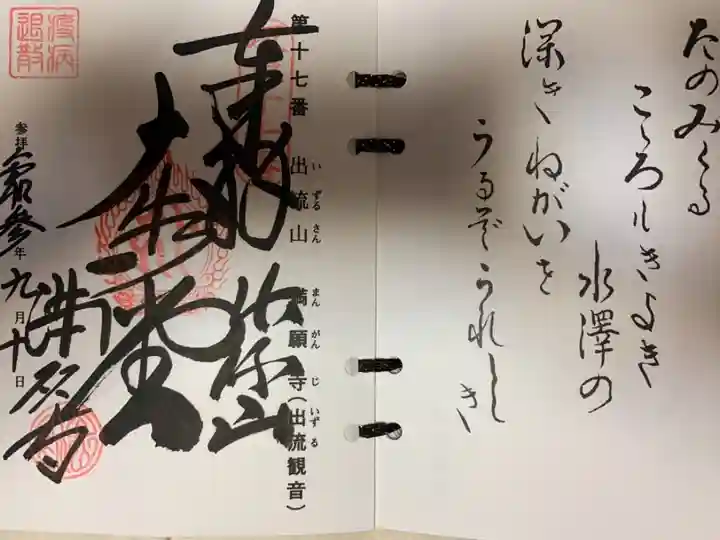 たのみくる
こゝろもきよき
水澤の
深きねがいを
うるぞうれしき
第十七番 出流山 満願寺(出流観音)
いずるさん まんがんじ いずる
満願寺
参拝 令和参年九月十日
疫病退散